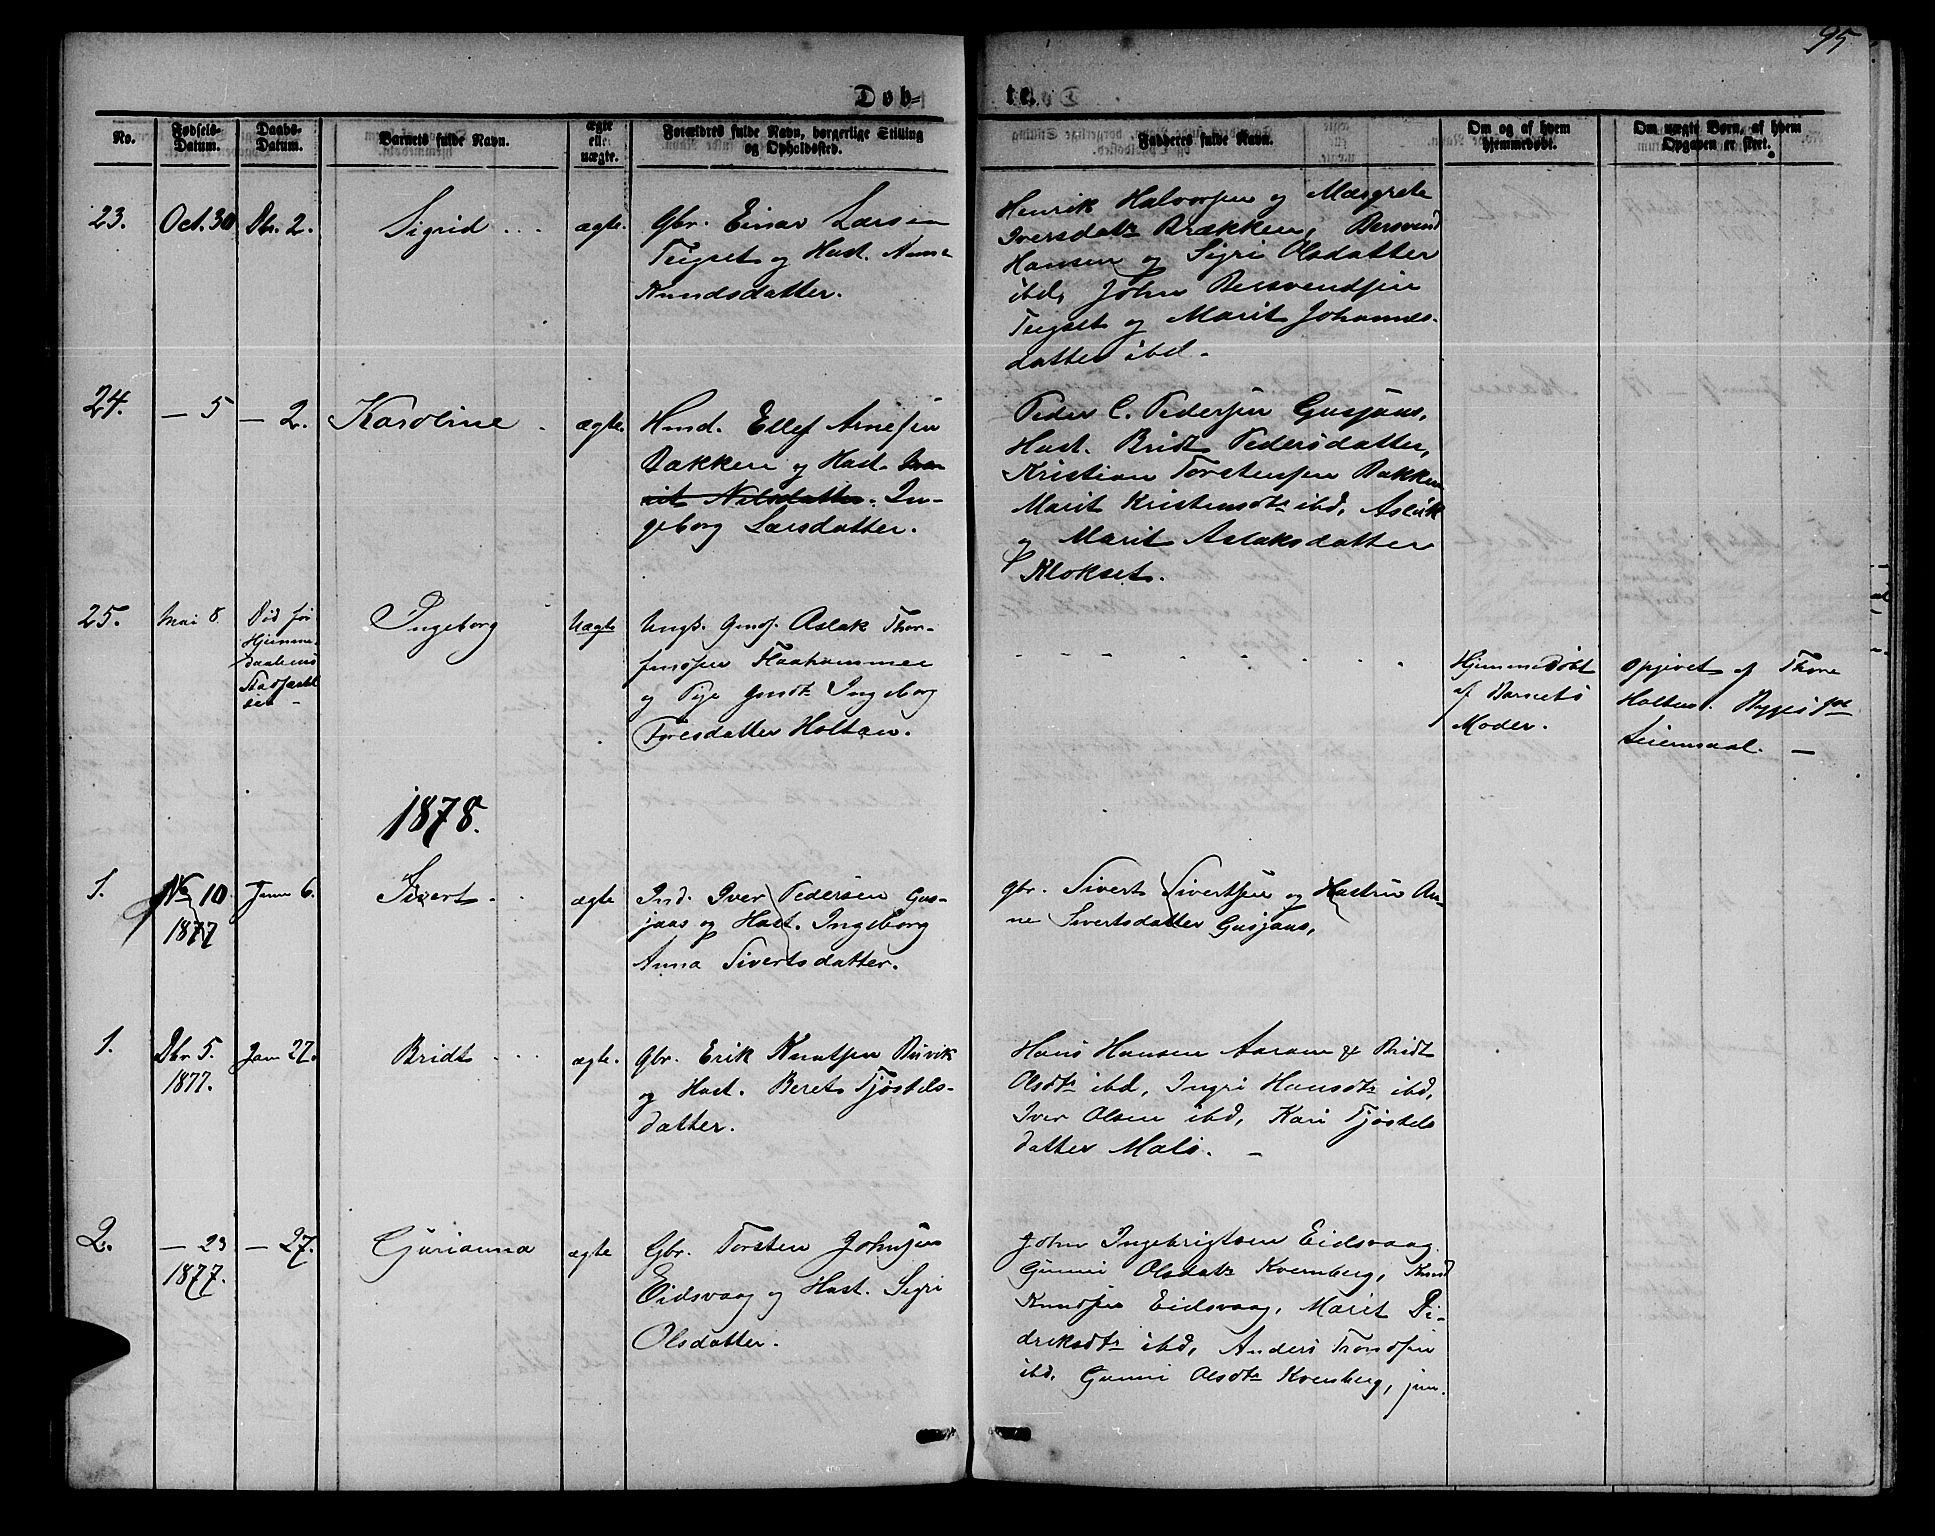 95
Døb-
te.
No.
Fødsels-
Datum.
Daabs-
Datum.
Barnets fulde Navn.
ægte
elle.
uægte.
Forældres fulde Navn, borgerlige Stilling
og Opholdssted.
Fadderes fulde Navn.
Om og af hvem
hjemmedøbt.
Om uægte Børn, af hvem
Opgaven er skeet.
23.
Oct. 30
Dbr. 2.
Sigrid
ægte.
Gbr. Einar Larsen
Teigset og Hust. Anne
Knudsdatter.
Henrik Halvorsen og Margrete
Iversdatr Brækken, Bersvend
Hansen og Sigri Olsdatter
ibd, John Bersvendsen
Teigset og Marit Johannes-
datter ibd.
24.
— 5
— 2.
Karoline
ægte.
Hmd. Ellef Arnesen
Bakken og Hust.
rit Nilsdatter. In-
geborg Larsdatter.
Peder C. Pedersen Gusjaas,
Hust. Bridt Pedersdatter,
Kristian Torstensen Bakken
Marit Kristensdtr ibd, Aslak
og Marit Aslaksdatter
Klokset.
25.
Mai 8.
Død før
Hjemme-
daabens
Stadfæstel
se
Ingeborg
Uægte
Ungk. Gmds. Aslak Thor-
finsen Flaahammer
og Pige Gmdtr Ingeborg
Toresdatter Holtan.
Hjemmedøbt
af Barnets
Moder.
Opgivet af Thore
Holten. Begges 1ste
Leiermaal. —
1878.
1.
10
1877
Janu 6.
Sivert
ægte
Ind. Iver Pedersen Gus-
jaas og Hust. Ingeborg
Anna Sivertsdatter.
Gbr. Sivert Sivertsen og Hustru An-
ne Sivertsdatter Gusjaas,
1.
Dbr 5.
1877.
Jan 27.
Bridt
ægte.
Gbr. Erik Knutsen Buvik
og Hust. Beret Tjøstels-
datter.
Hans Hansen Aaram & Bridt
Olsdtr ibd, Ingri Hansdtr ibd,
Iver Olsen ibd, Kari Tjøstels
datter Malo. —
2.
— 23
1877.
— 27.
Gurianna
ægte
Gbr. Torsten Johnsen
Eidsvaag og Hust. Sigri
Olsdatter.
John Ingebrigtsen Eidsvaag
Gunni Olsdatr Kvernberg, Knud
Knudsen Eidsvaag, Marit Di-
driksdtr ibd, Anders Trondsen
ibd, Gunni Olsdtr Kvernberg, jun.